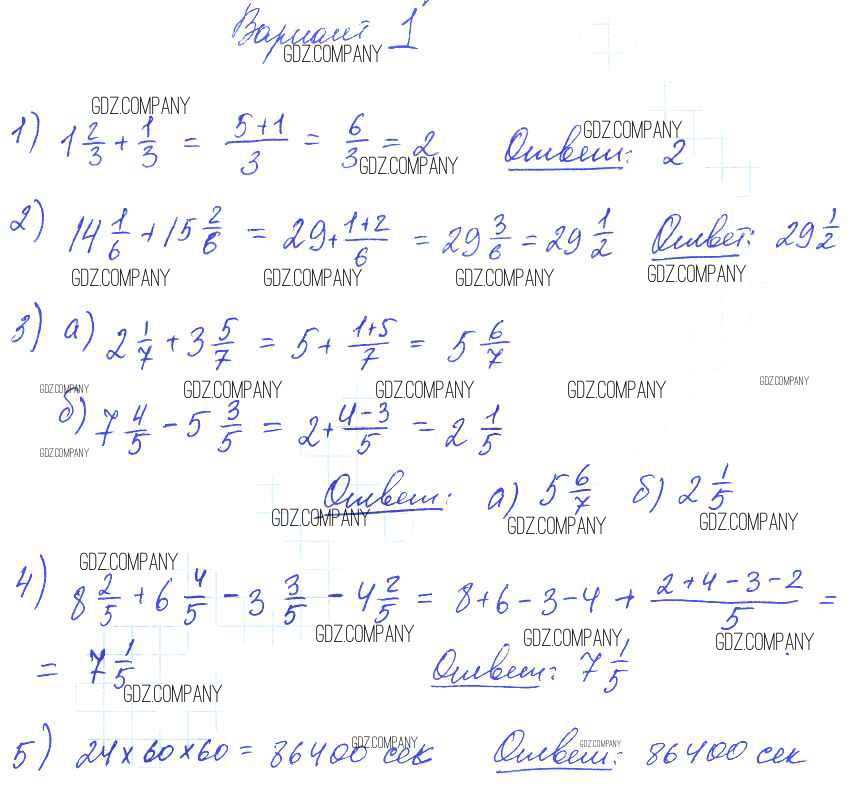 Вариант 1
GDZ.COMPANY
GDZ.COMPANY
GDZ.COMPANY
1) 1 2/3 + 1/3 = (5+1)/3 = 6/3 = 2 Ответ: 2
GDZ.COMPANY
2) 14 1/6 + 15 2/6 = 29 + (1+2)/6 = 29 3/6 = 29 1/2 Ответ: 29 1/2
GDZ.COMPANY GDZ.COMPANY GDZ.COMPANY GDZ.COMPANY
3) а) 2 1/7 + 3 5/7 = 5 + (1+5)/7 = 5 6/7
GDZ.COMPANY GDZ.COMPANY GDZ.COMPANY GDZ.COMPANY GDZ.COMPANY
б) 7 4/5 - 5 3/5 = 2 + (4-3)/5 = 2 1/5
GDZ.COMPANY
Ответ: а) 5 6/7 б) 2 1/5
GDZ.COMPANY GDZ.COMPANY GDZ.COMPANY
GDZ.COMPANY
4) 8 2/5 + 6 4/5 - 3 3/5 - 4 2/5 = 8+6-3-4 + (2+4-3-2)/5 =
GDZ.COMPANY GDZ.COMPANY GDZ.COMPANY
= 7 1/5 Ответ: 7 1/5
GDZ.COMPANY
GDZ.COMPANY GDZ.COMPANY
5) 24 x 60 x 60 = 86400 сек Ответ: 86400 сек